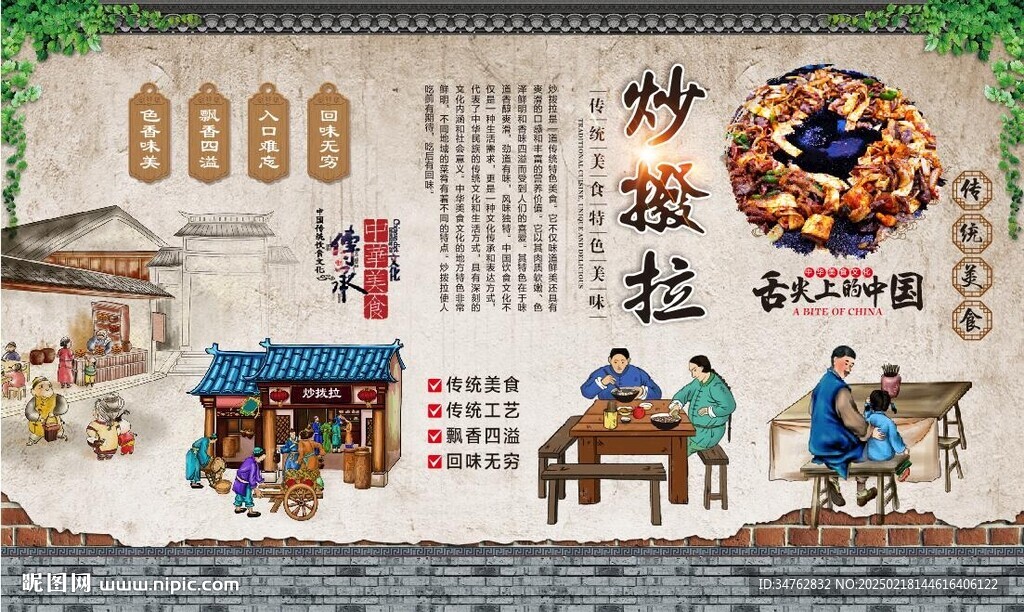 炒撥拉
传统美食特色美味
TRADITIONAL CUISINE, UNIQUE AND DELICIOUS
炒拨拉是一道传统特色美食，它不仅味道鲜美还具有
爽滑的口感和丰富的营养价值。它以其肉质软嫩、色
泽鲜明和香味四溢而受到人们的喜爱。其特色在于味
道香醇爽滑，劲道有味，风味独特。中国饮食文化不
仅是一种生活需求，更是一种文化传承和表达方式，
代表了中华民族的传统文化和生活方式，具有深刻的
文化内涵和社会意义。中华美食文化的地方特色非常
鲜明，不同地域的菜肴有着不同的特点。炒拨拉使人
吃前有期待，吃后有回味。
回味无穷
入口难忘
飘香四溢
色香味美
中华美食
文化
傳承
中国传统饮食文化
传统美食
中华美食文化
舌尖上的中国
A BITE OF CHINA
炒拨拉
传统美食
传统工艺
飘香四溢
回味无穷
昵图网 www.nipic.com
ID:34762832 NO:20250218144616406122